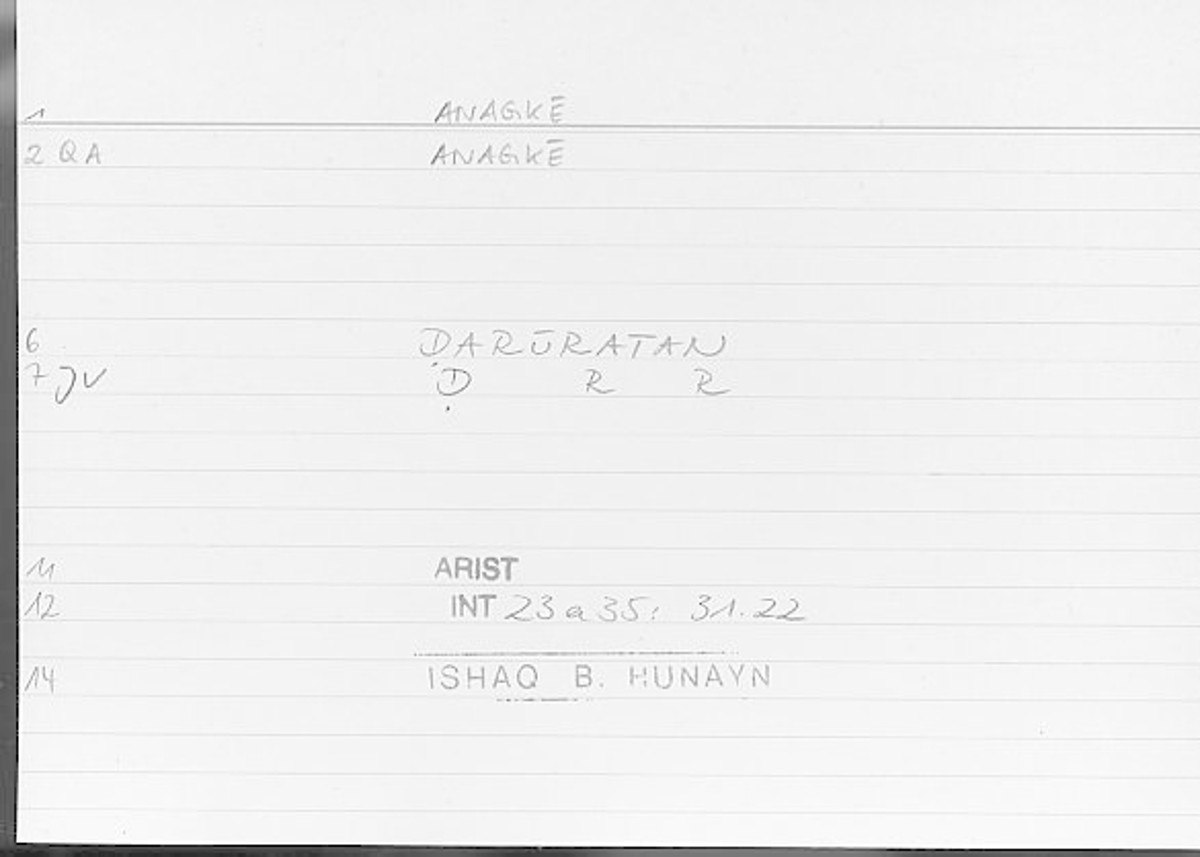 1 ANAGKĒ
2 QA ANAGKĒ
6 ḌARŪRATAN
7 JV Ḍ R R
11 ARIST
12 INT 23a35: 31.22
14 ISHAQ B. HUNAYN